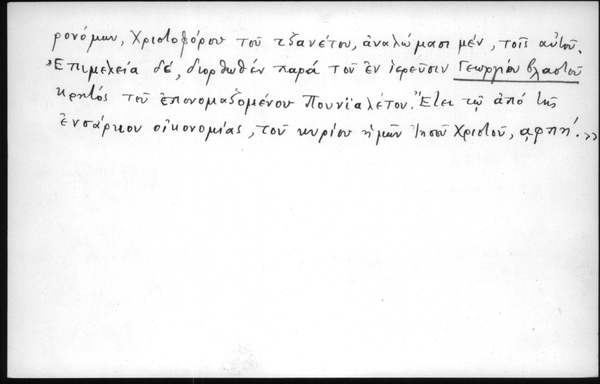 ρονόμων, Χριστοφόρου τοῦ τζανέτου, ἀναλώμασι μέν, τοῖς αὐτοῦ.
Ἐπιμελεία δέ, διορθωθέν παρά τοῦ ἐν ἱερεῦσιν Γεωργίου βλαστοῦ
κρητός τοῦ ἐπονομαζομένου Πουνιαλέτου. Ἔτει τῷ ἀπό τῆς
ἐνσάρκου οἰκονομίας, τοῦ κυρίου ἡμῶν Ἰησοῦ Χριστοῦ, αφπή.»